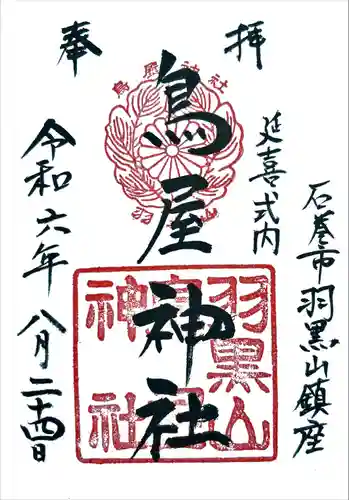 奉拝
石巻市羽黒山鎮座
延喜式内
鳥屋神社
令和六年八月二十四日
鳥屋神社
羽黒山
鳥屋
神社